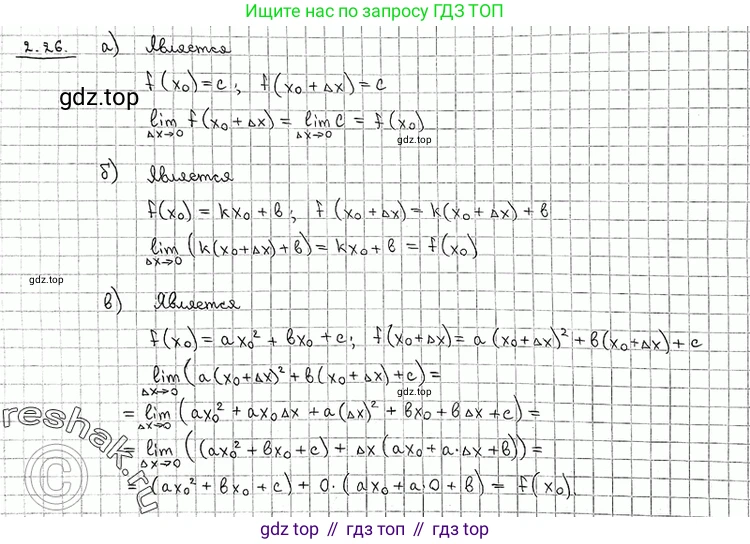 Ищите нас по запросу ГДЗ ТОП
2.26. а) Является
f(x₀) = c; f(x₀ + Δx) = c
gdz.top
lim f(x₀ + Δx) = lim c = f(x₀)
Δx→0 Δx→0
gdz.top
б) Является
f(x₀) = kx₀ + в; f(x₀ + Δx) = k(x₀ + Δx) + в
lim (k(x₀+Δx)+в) = kx₀ + в = f(x₀)
Δx→0
gdz.top
в) Является
f(x₀) = ax₀² + вx₀ + c; f(x₀+Δx) = a(x₀+Δx)² + в(x₀+Δx) + c
lim (a(x₀+Δx)² + в(x₀+Δx) + c) =
Δx→0
gdz.top
= lim (ax₀² + ax₀Δx + a(Δx)² + вx₀ + вΔx + c) =
Δx→0
= lim ((ax₀² + вx₀ + c) + Δx(ax₀ + a·Δx + в)) =
Δx→0
= (ax₀² + вx₀ + c) + 0·(ax₀ + a·0 + в) = f(x₀).
reshak.ru
©
gdz top // гдз топ // gdz top